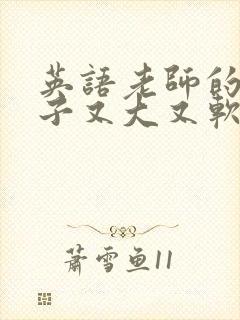 英語老師的
子又大又軟
蕭雪魚11